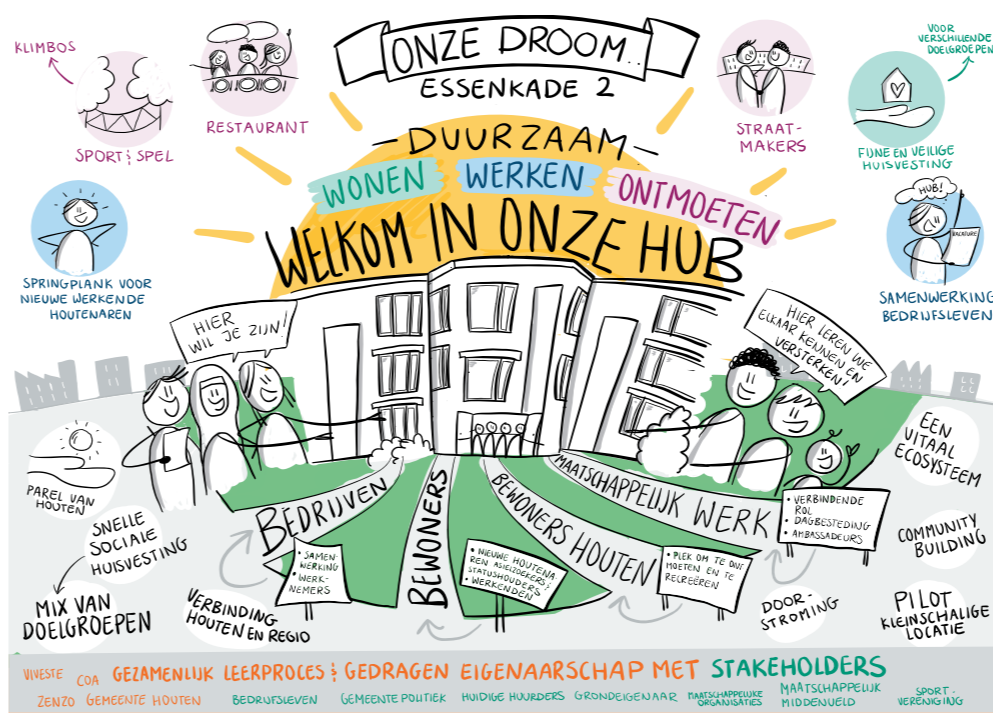 ONZE DROOM..
ESSENKADE 2
KLIMBOS
SPORT & SPEL
RESTAURANT
STRAAT-
MAKERS
VOOR
VERSCHILLENDE
DOELGROEPEN
FIJNE EN VEILIGE
HUISVESTING
-DUURZAAM-
WONEN WERKEN ONTMOETEN
WELKOM IN ONZE HUB
SPRINGPLANK VOOR
NIEUWE WERKENDE
HOUTENAREN
HUB!
VACATURE
SAMENWERKING
BEDRIJFSLEVEN
HIER
WIL JE ZIJN!
HIER LEREN WE
ELKAAR KENNEN EN
VERSTERKEN!
PAREL VAN
HOUTEN
SNELLE
SOCIALE
HUISVESTING
MIX VAN
DOELGROEPEN
VERBINDING
HOUTEN EN REGIO
BEDRIJVEN
• SAMEN-
WERKING
• WERK-
NEMERS
BEWONERS
• NIEUWE HOUTENA-
REN ASIELZOEKERS &
STATUSHOUDERS
• WERKENDEN
BEWONERS HOUTEN
• PLEK OM TE ONT
MOETEN EN TE
RECREËREN
MAATSCHAPPELIJK WERK
• VERBINDENDE
ROL
• DAGBESTEDING
• AMBASSADEURS
EEN
VITAAL
ECOSYSTEEM
COMMUNITY
BUILDING
DOOR-
STROMING
PILOT
KLEINSCHALIGE
LOCATIE
VIVESTE COA GEZAMENLIJK LEERPROCES & GEDRAGEN EIGENAARSCHAP MET STAKEHOLDERS
ZENZO GEMEENTE HOUTEN BEDRIJFSLEVEN GEMEENTE POLITIEK HUIDIGE HUURDERS GRONDEIGENAAR
MAATSCHAPPELIJKE
ORGANISATIES
MAATSCHAPPELIJK
MIDDENVELD
SPORT-
VERENIGING